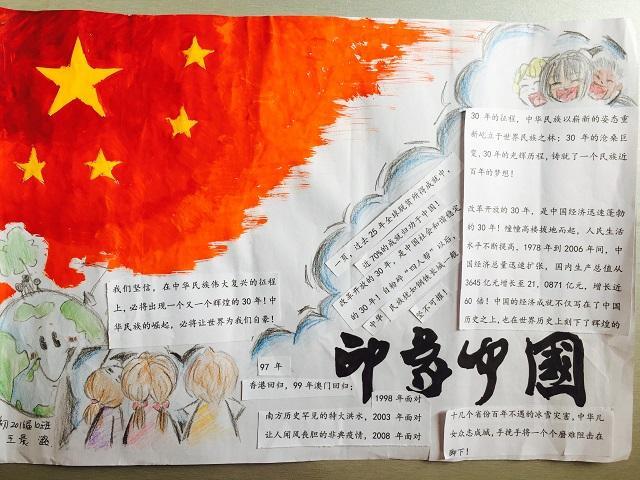 30 年的征程，中华民族以崭新的姿态重
新屹立于世界民族之林；30 年的沧桑巨
变，30 年的光辉历程，铸就了一个民族近
百年的梦想！
改革开放的 30 年，是中国经济迅速蓬勃
的 30 年！幢幢高楼拔地而起，人民生活
水平不断提高，1978 年到 2006 年间，中
国经济总量迅速扩张，国内生产总值从
3645 亿元增长至 21，0871 亿元，增长近
60 倍！中国的经济成就不仅写在了中国
历史之上，也在世界历史上刻下了辉煌的
一页，过去 25 年全球脱贫所得成就中，
近 70%的成就归功于中国！
改革开放的 30 年，是中国社会和谐稳定
的 30 年！自粉碎“四人帮”以后，
中华民族优如钢铁长城一般
坚不可摧！
我们坚信，在中华民族伟大复兴的征程
上，必将出现一个又一个辉煌的 30 年！中
华民族的崛起，必将让世界为我们自豪！
印象中国
97 年
香港回归，99 年澳门回归；
1998 年面对
南方历史罕见的特大洪水，2003 年面对
让人闻风丧胆的非典疫情，2008 年面对
十几个省份百年不遇的冰雪灾害，中华儿
女众志成城，手挽手将一个个磨难阻击在
脚下！